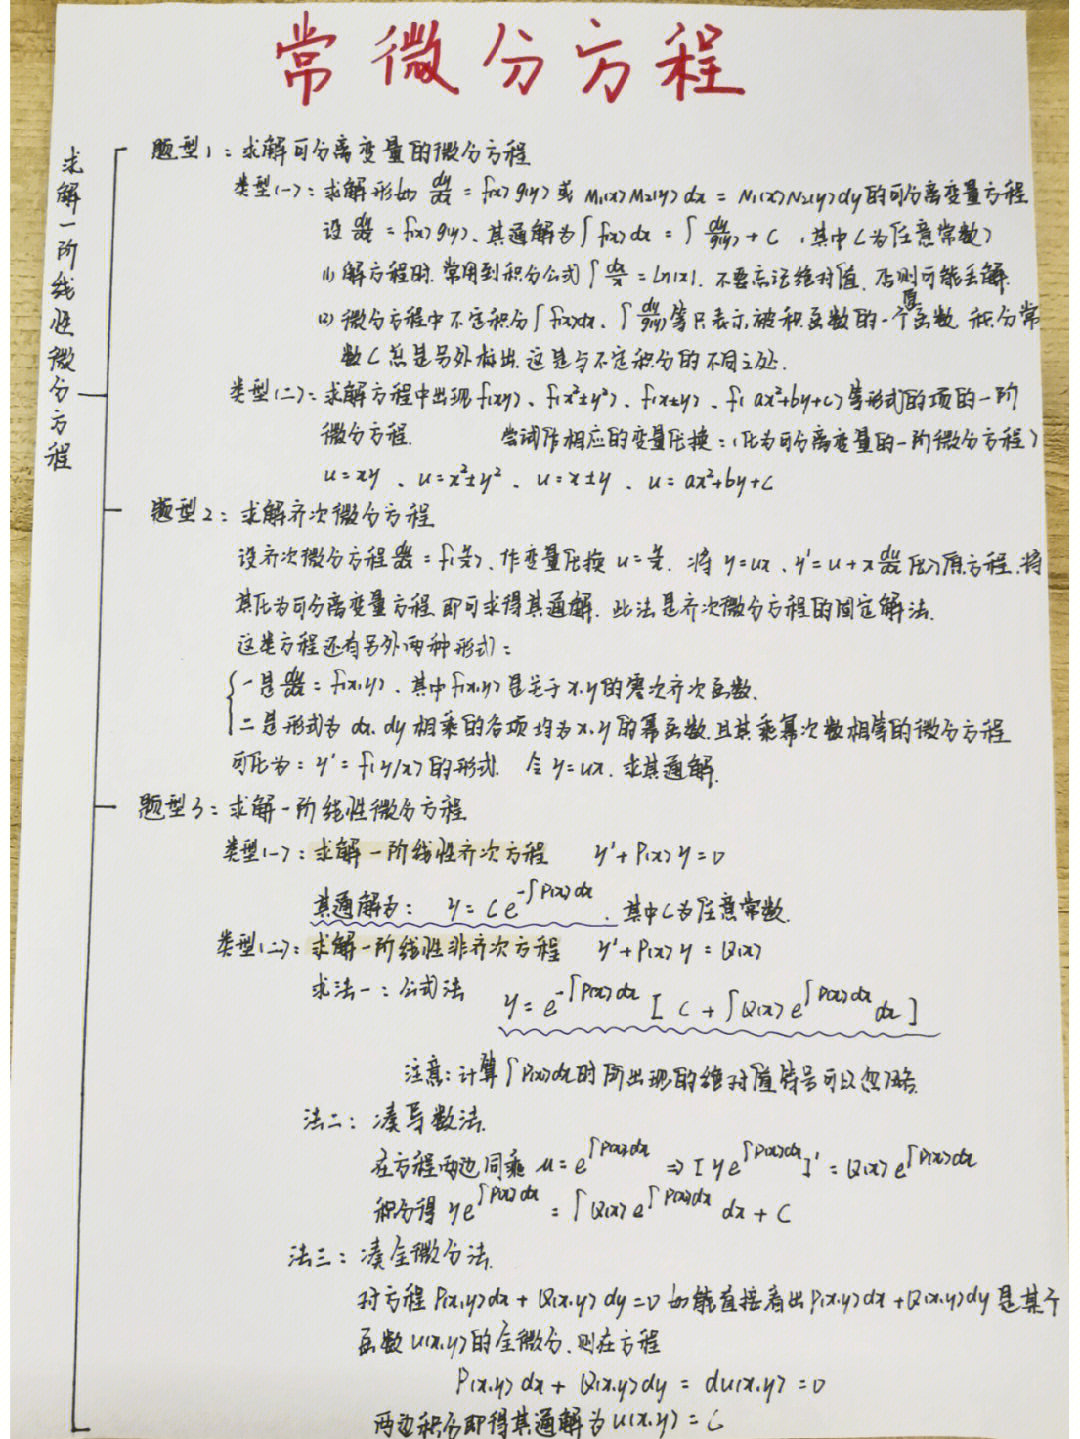 常微分方程
求解一阶线性微分方程
题型1：求解可分离变量的微分方程
类型(一)：求解形如 dy/dx = f(x)g(y) 或 M₁(x)M₂(y)dx = N₁(x)N₂(y)dy的可分离变量方程
设 dy/dx = f(x)g(y)、其通解为∫f(x)dx = ∫dy/g(y) + C，其中C为任意常数)
(1) 解方程时、常用到积分公式∫dx/x = ln|x|、不要忘记绝对值、否则可能丢解.
(2) 微分方程中不定积分∫f(x)dx、∫dy/g(y)等只表示被积函数的一个原函数、积分常
数C总是另外标出、这是与不定积分的不同之处.
类型(二)：求解方程中出现f(xy)、f(x²±y²)、f(x±y)、f(ax²+by+c)等形式的项的一阶
微分方程. 尝试作相应的变量代换：(化为可分离变量的一阶微分方程)
u=xy、u=x²±y²、u=x±y、u=ax²+by+c
题型2：求解齐次微分方程
设齐次微分方程dy/dx = f(y/x)、作变量代换 u=y/x. 将 y=ux、y'=u+x du/dx 代入原方程、将
其化为可分离变量方程、即可求得其通解、此法是齐次微分方程的固定解法.
这类方程还有另外两种形式：
一是dy/dx = f(x,y)、其中f(x,y)是关于x,y的零次齐次函数.
二是形式为 dx、dy 相乘的各项均为x,y的幂函数、且其乘幂次数相等的微分方程
可化为：y'=f(y/x)的形式. 令y=ux、求其通解.
题型3：求解一阶线性微分方程
类型(一)：求解一阶线性齐次方程 y'+P(x)y=0
其通解为： y=Ce^(-∫P(x)dx)、其中C为任意常数.
类型(二)：求解一阶线性非齐次方程 y'+P(x)y=Q(x)
求法一：公式法 y=e^(-∫P(x)dx)[C+∫Q(x)e^(∫P(x)dx)dx]
注意：计算∫P(x)dx时所出现的绝对值符号可以忽略.
法二：凑导数法.
在方程两边同乘 μ=e^(∫P(x)dx) ⇒[ye^(∫P(x)dx)]'=Q(x)e^(∫P(x)dx)
积分得 ye^(∫P(x)dx)=∫Q(x)e^(∫P(x)dx)dx+C
法三：凑全微分法.
对方程P(x,y)dx+Q(x,y)dy=0如能直接看出P(x,y)dx+Q(x,y)dy是某个
函数u(x,y)的全微分、则在方程
P(x,y)dx+Q(x,y)dy=du(x,y)=0
两边积分即得其通解为u(x,y)=C